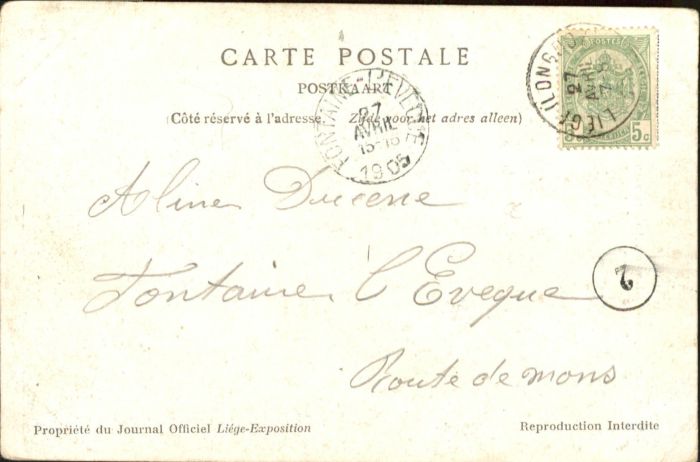 CARTE POSTALE
POSTKAART
(Côté réservé à l'adresse. Zijde voor het adres alleen)
FONTAINE-L'EVEQUE
27
AVRIL
1905
LIÉGE (LONGDOZ)
27
AVRIL
POSTES
5c
Aline Ducene
Fontaine l'Eveque
Route de mons
2
Propriété du Journal Officiel Liége-Exposition
Reproduction Interdite